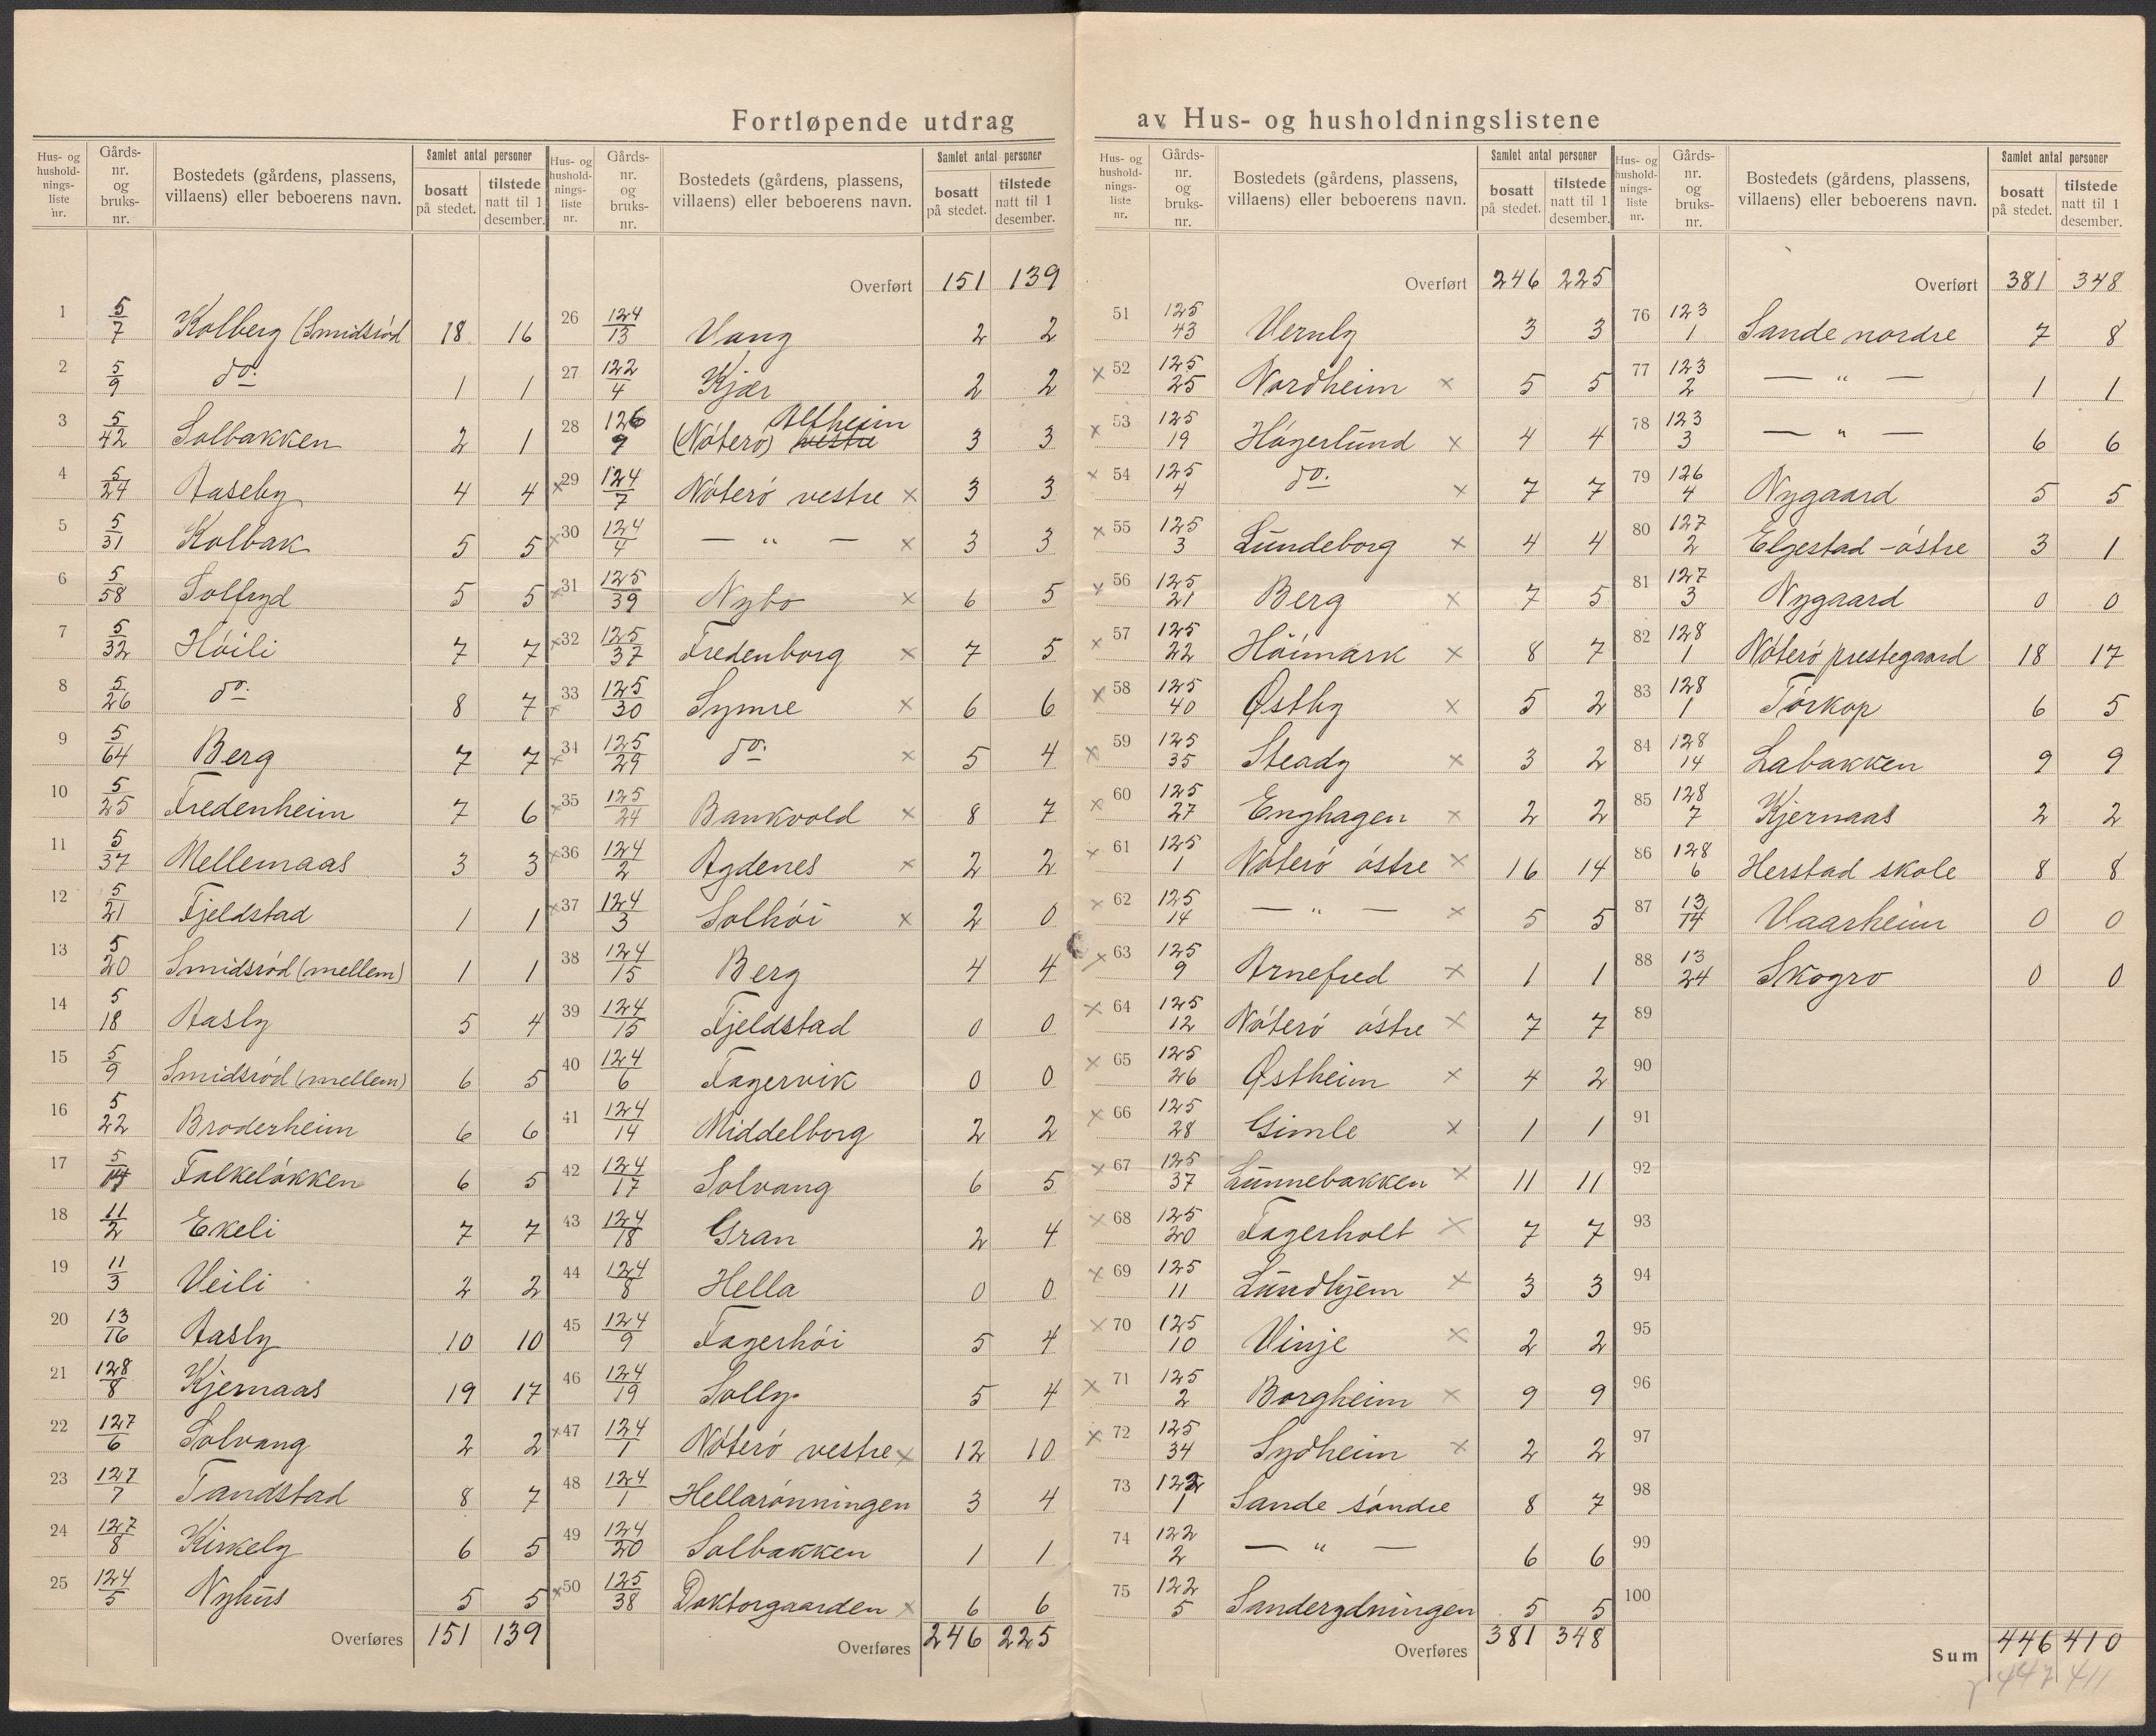 Fortløpende utdrag av Hus- og husholdningslistene
Hus- og husholdnings-liste nr. | Gårds-nr. og bruks-nr. | Bostedets (gårdens, plassens, villaens) eller beboerens navn. | Samlet antal personer | bosatt på stedet. | tilstede natt til 1 desember.
1 5/7 Kolberg (Smidsrød 18 16
2 5/9 do. 1 1
3 5/42 Solbakken 2 1
4 5/24 Aaseby 4 4
5 5/31 Kolbak 5 5
6 5/58 Solfryd 5 5
7 5/32 Høili 7 7
8 5/26 do. 8 7
9 5/64 Berg 7 7
10 5/25 Fredenheim 7 6
11 5/37 Mellemaas 3 3
12 5/21 Fjeldstad 1 1
13 5/20 Smidsrød (mellem) 1 1
14 5/18 Aasly 5 4
15 5/9 Smidsrød (mellem) 6 5
16 5/22 Broderheim 6 6
17 5/ Falkeløkken 6 5
18 11/2 Ekeli 7 7
19 11/3 Veili 2 2
20 13/16 Aasly 10 10
21 128/8 Kjernaas 19 17
22 127/6 Solvang 2 2
23 127/7 Tandstad 8 7
24 127/8 Kirkely 6 5
25 124/5 Nyhus 5 5
Overføres 151 139
Hus- og husholdnings-liste nr. | Gårds-nr. og bruks-nr. | Bostedets (gårdens, plassens, villaens) eller beboerens navn. | Samlet antal personer | bosatt på stedet. | tilstede natt til 1 desember.
Overført 151 139
26 124/13 Vang 2 2
27 122/4 Kjær 2 2
28 126/9 (Nøterø) vestre Altheim 3 3
x 29 124/7 Nøterø vestre x 3 3
x 30 124/4 — " — x 3 3
x 31 125/39 Nybo x 6 5
x 32 125/37 Fredenborg x 7 5
x 33 125/30 Symre x 6 6
x 34 125/29 do. x 5 4
x 35 125/24 Bankvold x 8 7
x 36 124/2 Agdenes x 2 2
x 37 124/3 Solhøi x 2 0
38 124/15 Berg 4 4
39 124/15 Fjeldstad 0 0
40 124/6 Fagervik 0 0
41 124/14 Middelborg 2 2
42 124/17 Solvang 6 5
43 124/18 Gran 2 4
44 124/8 Hella 0 0
45 124/9 Fagerhøi 5 4
46 124/19 Solly 5 4
x 47 124/1 Nøterø vestre x 12 10
48 124/1 Hellarønningen 3 4
49 124/20 Solbakken 1 1
x 50 125/38 Doktorgaarden x 6 6
Overføres 246 225
Hus- og husholdnings-liste nr. | Gårds-nr. og bruks-nr. | Bostedets (gårdens, plassens, villaens) eller beboerens navn. | Samlet antal personer | bosatt på stedet. | tilstede natt til 1 desember.
Overført 246 225
51 125/43 Vernly 3 3
x 52 125/25 Nordheim x 5 5
x 53 125/19 Høgerlund x 4 4
x 54 125/4 do. x 7 7
x 55 125/3 Lundeborg x 4 4
x 56 125/21 Berg x 7 5
x 57 125/22 Høimark x 8 7
x 58 125/40 Østby x 5 2
x 59 125/35 Steady x 3 2
x 60 125/27 Enghagen x 2 2
x 61 125/1 Nøterø østre x 16 14
x 62 125/14 — " — x 5 5
x 63 125/9 Arnefred x 1 1
x 64 125/12 Nøterø østre x 7 7
x 65 125/26 Østheim x 4 2
x 66 125/28 Gimle x 1 1
x 67 125/37 Lunnebakken x 11 11
x 68 125/20 Fagerholt x 7 7
x 69 125/11 Lundhjem x 3 3
x 70 125/10 Vinje x 2 2
x 71 125/2 Borgheim x 9 9
x 72 125/34 Sydheim x 2 2
73 122/1 Sande søndre 8 7
74 122/2 — " — 6 6
75 122/5 Sanderydningen 5 5
Overføres 381 348
Hus- og husholdnings-liste nr. | Gårds-nr. og bruks-nr. | Bostedets (gårdens, plassens, villaens) eller beboerens navn. | Samlet antal personer | bosatt på stedet. | tilstede natt til 1 desember.
Overført 381 348
76 123/1 Sande nordre 7 8
77 123/2 — " — 1 1
78 123/3 — " — 6 6
79 126/4 Nygaard 5 5
80 127/2 Elgestad - østre 3 1
81 127/3 Nygaard 0 0
82 128/1 Nøterø prestegaard 18 17
83 128/1 Torkop 6 5
84 128/14 Labakken 9 9
85 128/7 Kjernaas 2 2
86 128/6 Herstad skole 8 8
87 13/14 Vaarheim 0 0
88 13/24 Skogro 0 0
89
90
91
92
93
94
95
96
97
98
99
100
Sum 446 410
447 411